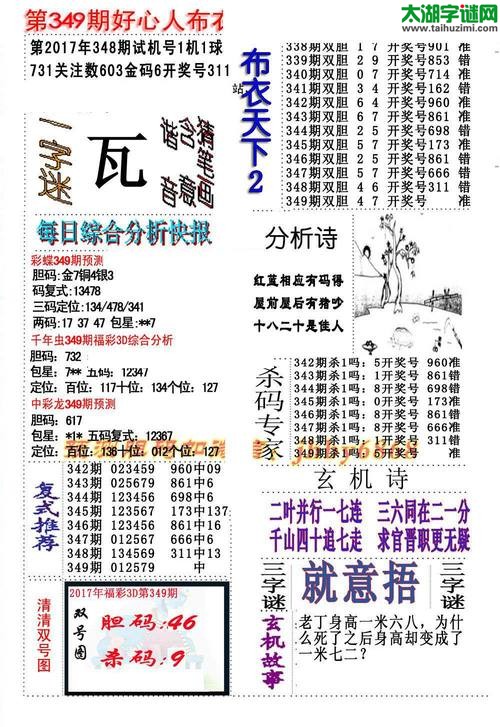 第349期好心人布衣
太湖字谜网
http://www.taihuzimi.com
第2017年348期试机号1机1球
731关注数603金码6开奖号311
站
一字迷
瓦
猜笔画
含意
谐音
布衣天下2
338期双胆 1 7 开奖号901 准
339期双胆 2 9 开奖号853 错
340期双胆 0 7 开奖号714 准
341期双胆 3 4 开奖号162 错
342期双胆 6 7 开奖号960 准
343期双胆 3 4 开奖号861 错
344期双胆 2 5 开奖号698 错
345期双胆 0 7 开奖号173 准
346期双胆 2 5 开奖号861 错
347期双胆 6 7 开奖号666 准
348期双胆 4 6 开奖号311 错
349期双胆 4 7 开奖号 准
每日综合分析快报
彩蝶349期预测
胆码:金7铜4银3
码复式:13478
三码定位:134/478/341
两码:17 37 47 包星:**7
千年虫349期福彩3D综合分析
胆码:732
包星:7** 五码:12347
定位:百位:117十位:134个位:127
中彩龙349期预测
胆码:617
包星:*1* 五码复式:12367
定位:百位:136十位:012个位:127
分析诗
红蓝相应有码得
屋前屋后有猪吵
十八二十是佳人
杀码专家
342期杀1吗:5开奖号 960准
343期杀1吗:1开奖号 861错
344期杀1吗:8开奖号 698错
345期杀1吗:0开奖号 173准
346期杀1吗:4开奖号 861准
347期杀1吗:1开奖号 666准
348期杀1吗:1开奖号 311错
349期杀1吗:5开奖号 准
复式推荐
342期 023459 960中09
343期 025679 861中6
344期 123456 698中6
345期 123567 173中137
346期 024567 861中6
347期 012346 666中6
348期 134569 311中13
349期 012579 中
玄机诗
二叶并行一七连 三六同在二一分
千山四十追七走 求官晋职更无疑
三字谜
就意捂
三字谜
清清双号图
2017年福彩3D第349期
双号图
胆码:46
杀码:9
玄机故事
老丁身高一米六八,为什
么死了之后身高却变成了
一米七二?